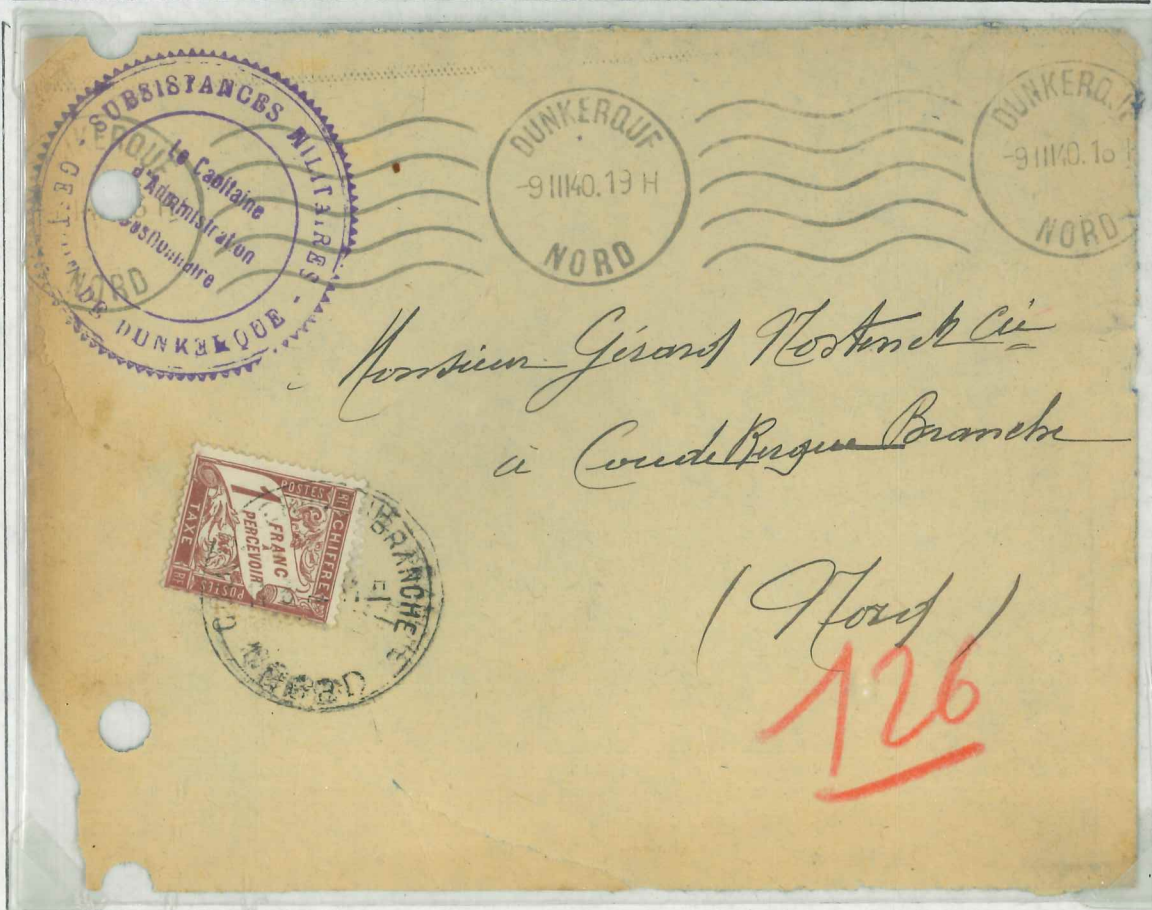 SUBSISTANCES MILITAIRES -
DE DUNKERQUE -
Le Capitaine
d'Administration
Gestionnaire
NORD
DUNKERQUE
-9 III 40. 19 H
NORD
DUNKERQ
-9 III 40. 18 H
NORD
Monsieur Gérard & Cie
à CoudeKergue Branche
(Nord)
126
POSTES
CHIFFRE
1
FRANC
À
PERCEVOIR
TAXE
POSTES
BRANCHE
NORD